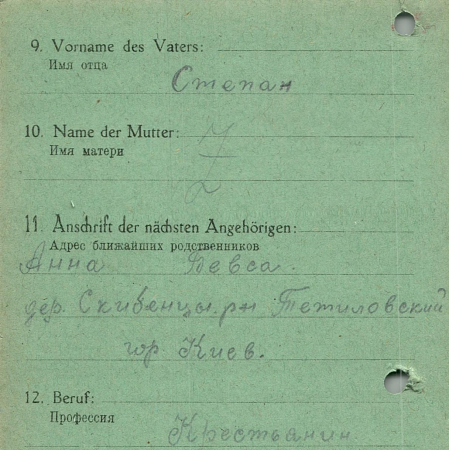 9. Vorname des Vaters:
Имя отца
Степан
10. Name der Mutter:
Имя матери
11. Anschrift der nächsten Angehörigen:
Адрес ближайших родственников
Анна Бевса.
дер. Скибенцы. рн Тетиловский
гор Киев.
12. Beruf:
Профессия
Крестьянин